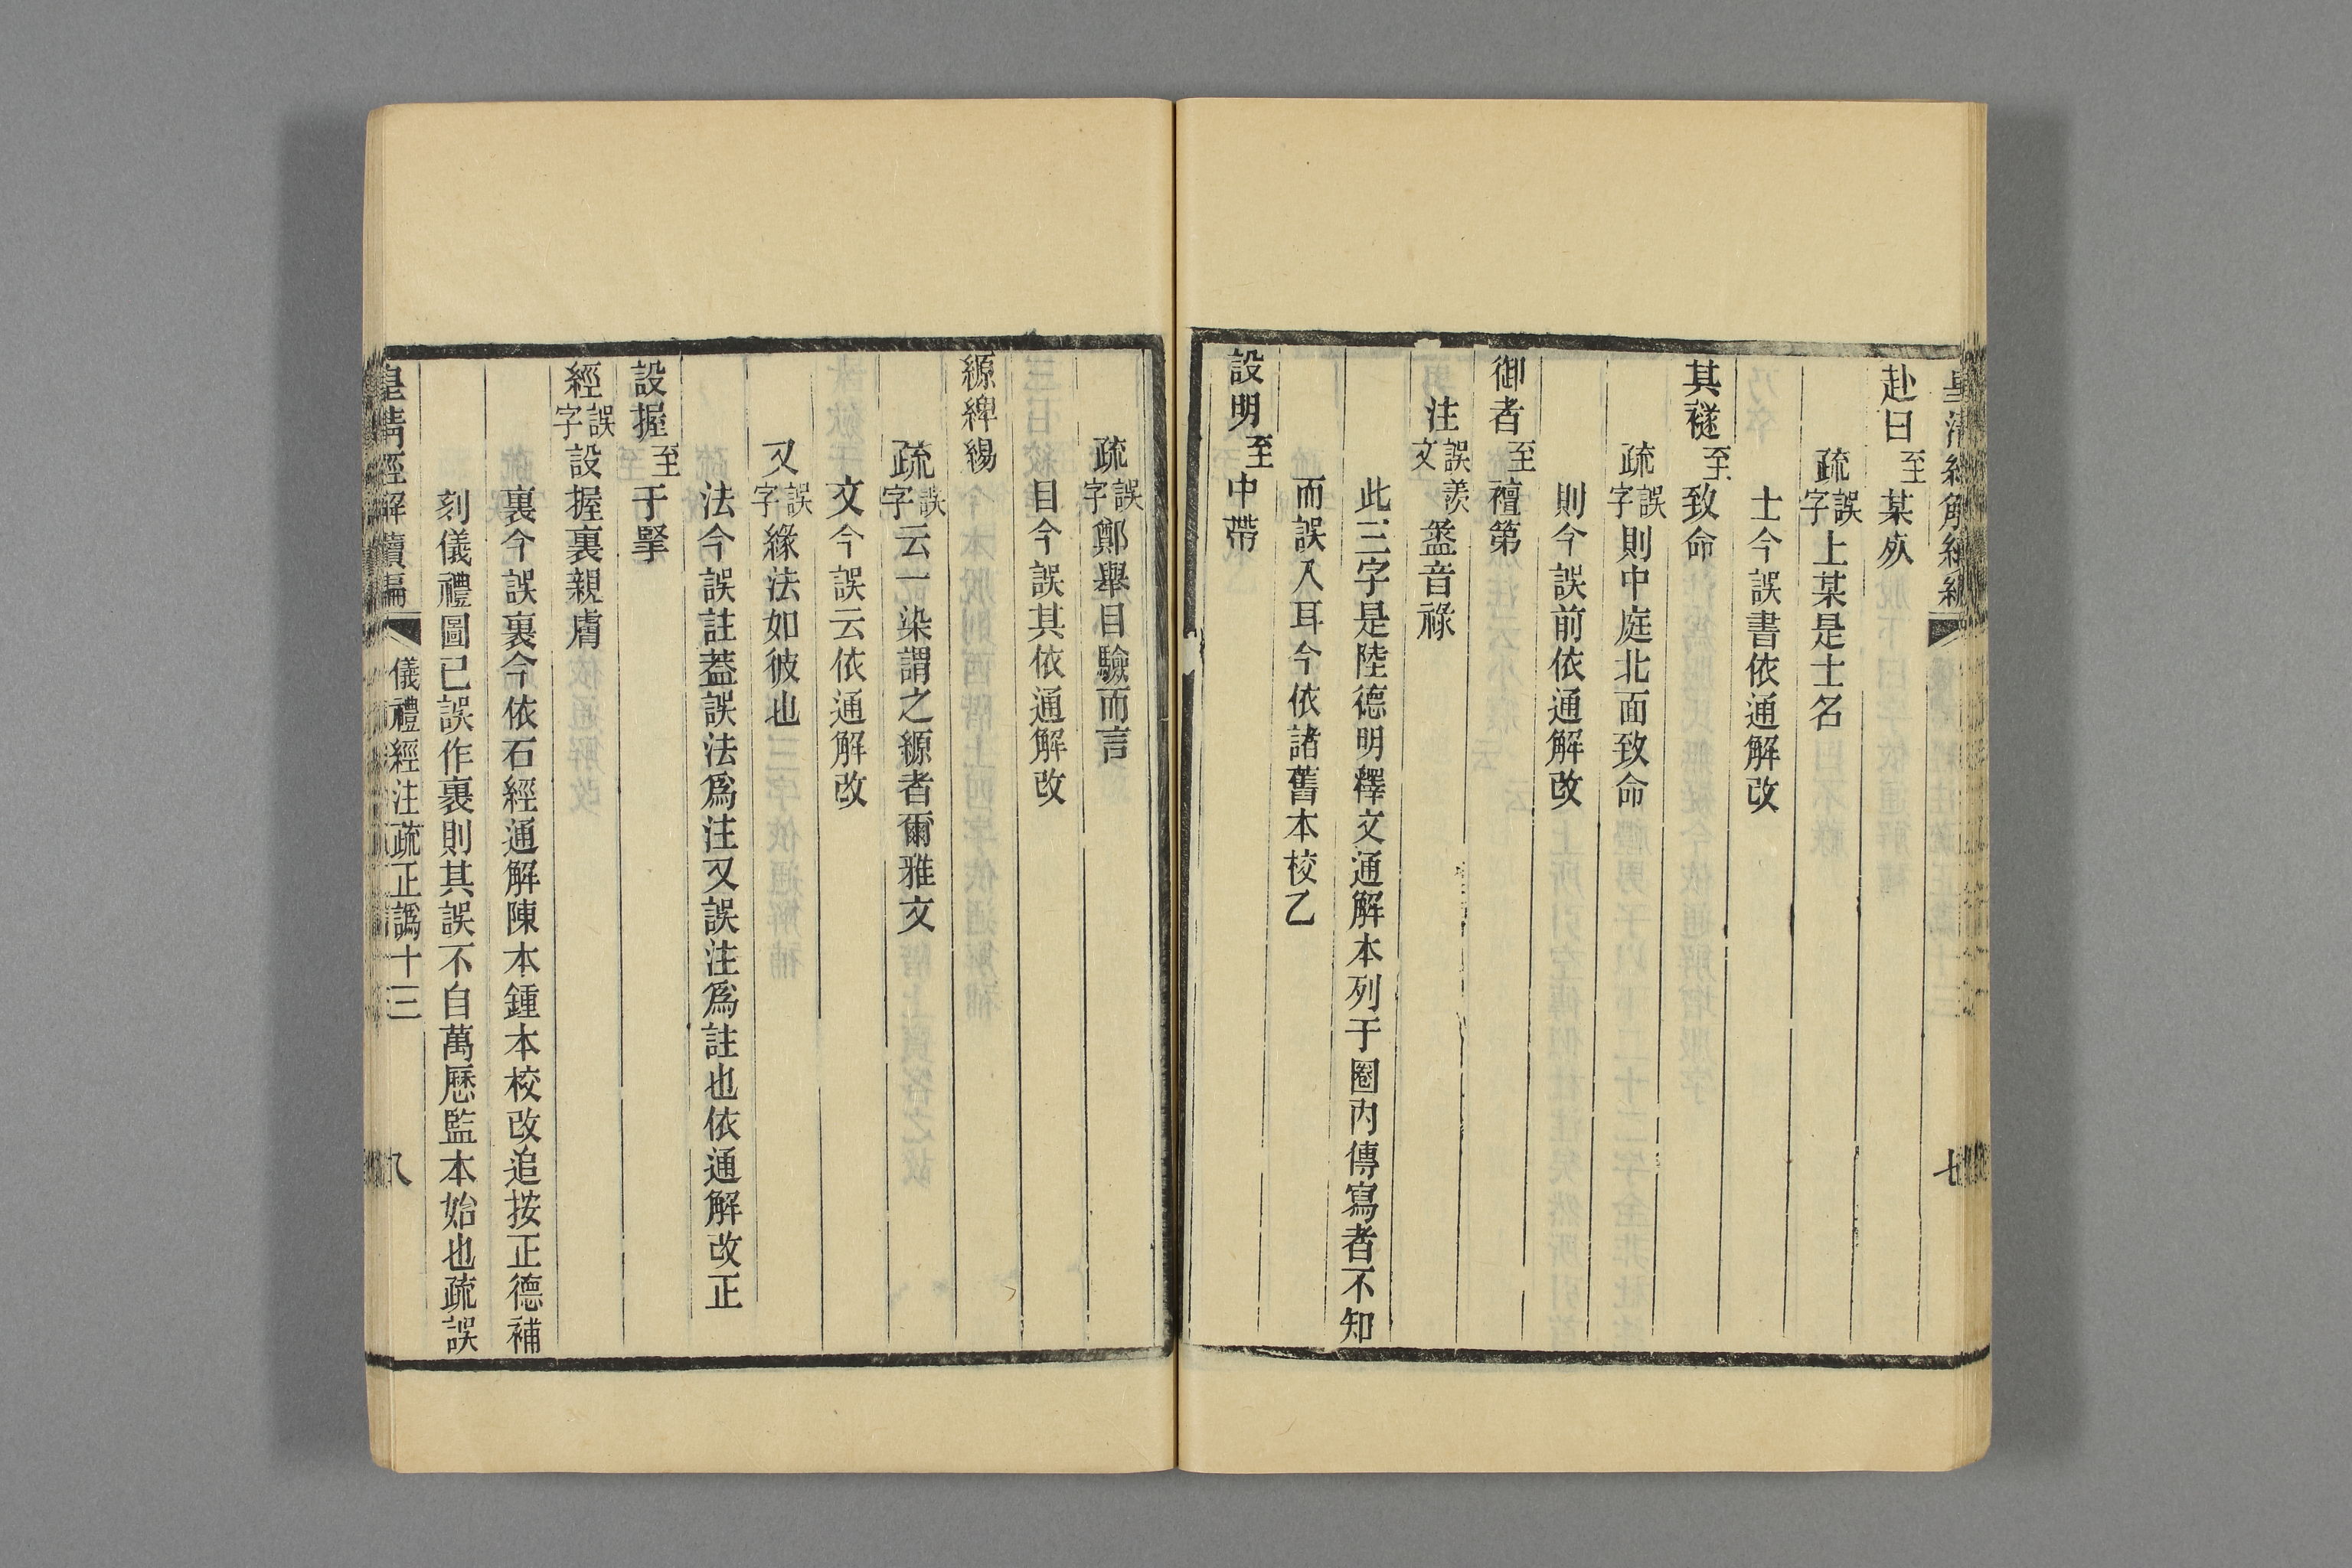 赴曰至某𣦸
疏誤字上某是士名
士今誤書依通解改
其襚至致命
疏誤字則中庭北面致命
則今誤前依通解改
御者至襢第
注誤羨文盝音祿
此三字是陸德明釋文通解本列于圈內傳寫者不知
而誤入耳今依諸舊本校乙
設明至中帶
疏誤字鄭舉目驗而言
目今誤其依通解改
縓綼緆
疏誤字云一染謂之縓者爾雅文
文今誤云依通解改
又誤字緣法如彼也
法今誤註葢誤法爲注又誤注爲註也依通解改正
設握至于掔
經誤字設握裏親膚
裏今誤裹今依石經通解陳本鍾本校改追按正德補
刻儀禮圖已誤作裹則其誤不自萬歷監本始也疏誤
皇清經解續編 儀禮經注疏正譌十三 八